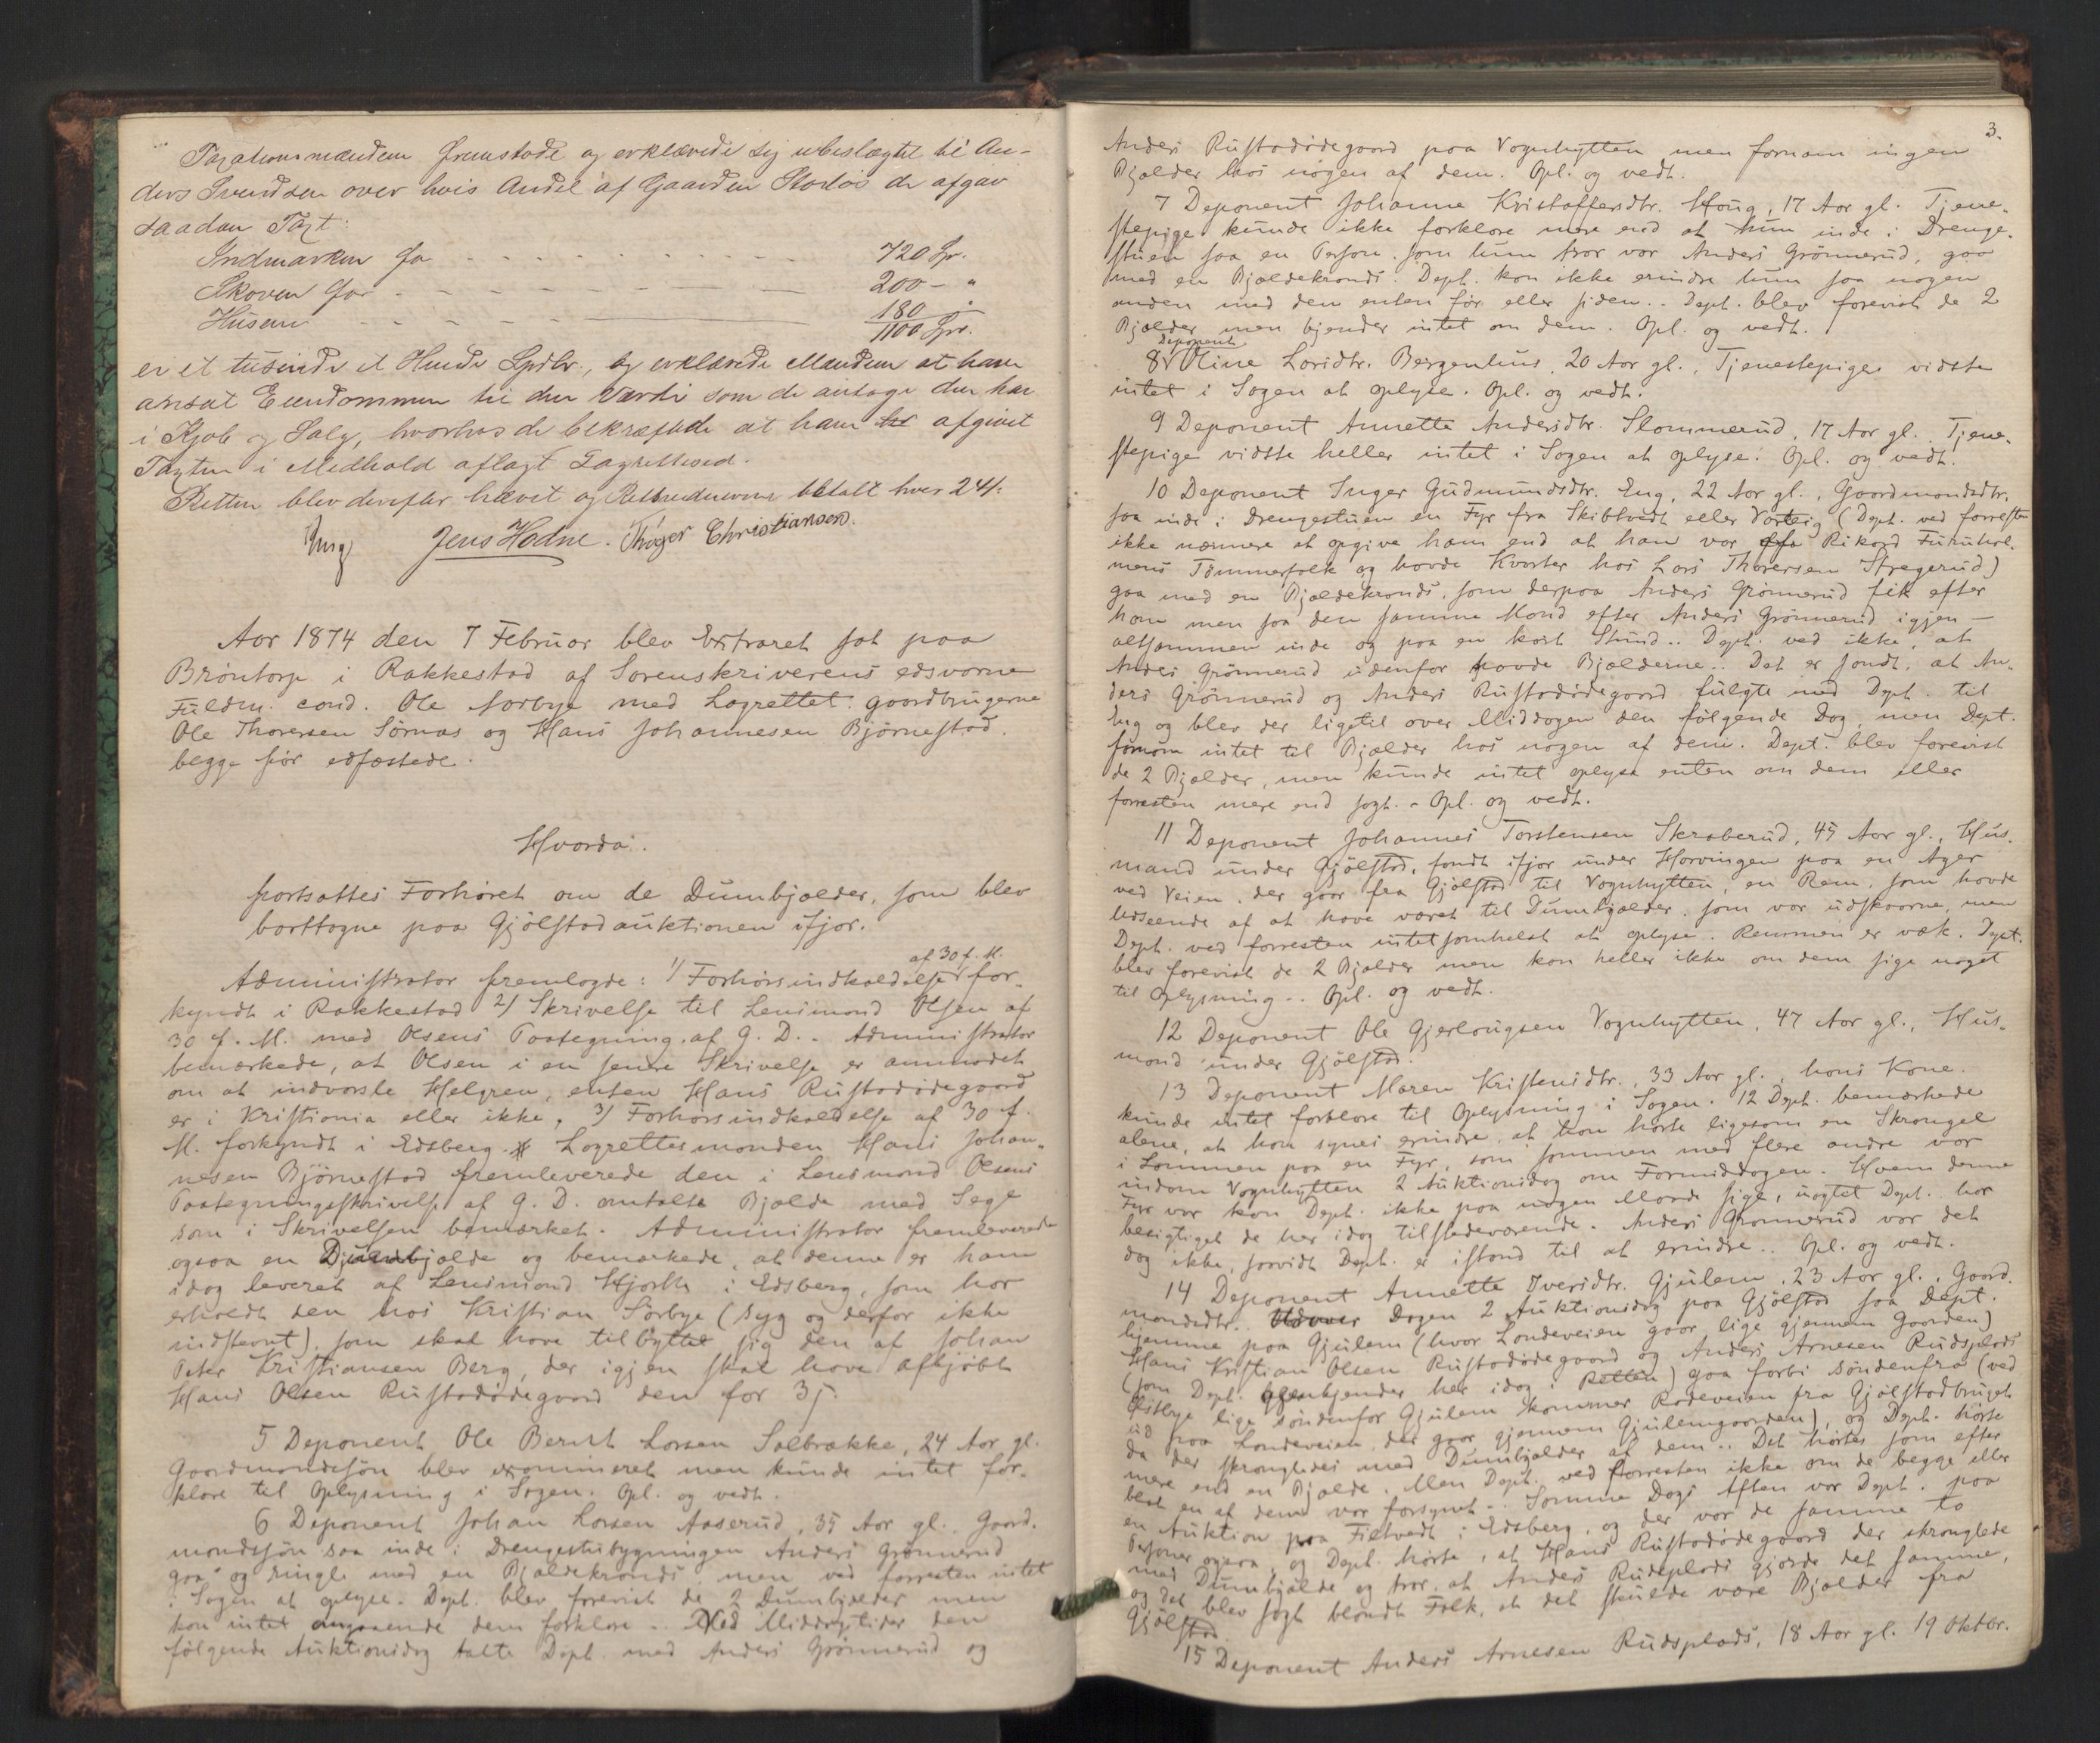 Taxationsmændene fremstode og erklærede sig ubeslægtet til An-
ders Svendsen over hvis Andel af Gaarden Stordøs de afgav
saadan Taxt:
Indmarken for - - - - - - - 720 Spr.
Skoven for - - - - - - - 200 - "
Husene - - - - 180 - "
1100 Spr.
er et tusinde et Hundr. Spdlr., og erklærede Mændene at have
ansat Eiendommen til den Værdi som de antage den har
i Kjøb og Salg, hvorhos de bekræftede at have afgivet
Taxten i Medhold aflagt Lagrettesed.
Retten blev derefter hævet og Retsvidnerne betalt hver 24 s.
Jens Hodne. Thøger Christiansen.
Aar 1874 den 7 Februar blev Extraret sat paa
Bröntorp i Rakkestad af Sorenskriverens edsvorne
Fuldm. cand. Ole Sorbye med Lagrettet: Gaardbrugerne
Ole Thoresen Sörnas og Hans Johannesen Björnestad.
begge för edfæstede.
Hvorda:
fortsattes Forhöret om de Dumbjælder, som blev
borttagne paa Gjölstadauktionen ifjor.
af 30 f. M.
Administrator fremlagde: 1) Forhörsindkaldelse for-
kyndt i Rakkestad 2) Skrivelse til Lensmand Olsen af
30 f. M. med Olsens Paategning af G. D. - Administrator
bemærkede, at Olsen i en senere Skrivelse er anmodet
om at indvarsle Helgren, enten Hans Rustadödegaard
er i Kristiania eller ikke, 3) Forhörsindkaldelse af 30 f.
M. forkyndt i Edsberg. Lagrettesmanden Hans Johan-
nesen Björnestad fremleverede den i Lensmand Olsens
Paategningsskrivelse af G. D. omtalte Bjælde med Sege
som i Skrivelsen bemærket. Administrator fremleverede
ogsaa en Dumbjælde og bemærkede, at denne er ham
idag leveret af Lensmand Hjorth i Edsberg, som har
erholdt den hos Kristian Sörbye (syg og derfor ikke
indstevnt), som skal have tilbyttet sig den af Johan
Peter Kristiansen Berg, der igjen skal have afkjöbt
Hans Olsen Rustadödegaard den for 3 s.
5 Deponent Ole Bernt Larsen Solbrække, 24 Aar gl.
Gaardmandssön blev examineret men kunde intet for-
klare til Oplysning i Sagen. Opl. og vedt.
6 Deponent Johan Larsen Aaserud, 35 Aar gl. Gaard-
mandssön saa inde i Drengestubygningen Anders Grönnerud
gaa og ringle med en Bjældekrands men ved forresten intet
i Sagen at oplyse. Dept. blev forevist de 2 Dumbjælder men
kan intet angaaende dem forklare. - Ved Middagstider den
fölgende Auktionsdag talte Dept. med Anders Grönnerud og
3.
Anders Rustadödegaard paa Vognhytten men fornam ingen
Bjælder hos nogen af dem. Opl. og vedt.
7 Deponent Johanne Kristoffersdtr. Haug, 17 Aar gl. Tjene-
stepige kunde ikke forklare mere end at hun inde i Drenge-
stuen saa en Person, som hun tror var Anders Grönnerud, gaa
med en Bjældekrands. Dept. kan ikke erindre hun saa nogen
anden med den enten för eller siden. - Dept. blev forevist de 2
Bjælder men kjender intet om dem. Opl. og vedt.
Deponent
8 Oline Larsdtr. Bergenhus, 20 Aar gl., Tjenestepige vidste
intet i Sagen at oplyse. Opl. og vedt.
9 Deponent Annette Andersdtr. Slommerud, 17 Aar gl. Tjene-
stepige vidste heller intet i Sagen at oplyse. Opl. og vedt.
10 Deponent Inger Gudmundsdtr. Eng, 22 Aar gl., Gaardmandsdtr.
saa inde i Drengestuen en Fyr fra Skibtvedt eller Varteig (Dept. ved forresten
ikke nærmere at opgive ham end at han var Rikard Furuhol-
mens Tömmerfolk og havde Kvarter hos Lars Thoresen Stregerud)
gaa med en Bjældekrands, som derpaa Anders Grönnerud fik efter
ham men saa den samme Mand efter Anders Grönnerud igjen -
altsammen inde og paa en kort Stund. - Dept. ved ikke, at
Anders Grönnerud udenfor havde Bjælderne. - Det er sandt, at An-
ders Grönnerud og Anders Rustadödegaard fulgte med Dept. til
Eng og blev der ligetil over Middagen den fölgende Dag, men Dept.
fornam intet til Bjælder hos nogen af dem. Dept. blev forevist
de 2 Bjælder, men kunde intet oplyse enten om dem eller
forresten mere end sagt. - Opl. og vedt.
11 Deponent Johannes Torstensen Skraberud, 45 Aar gl., Hus-
mand under Gjölstad, fandt ifjor under Harvingen paa en Ager
ved Veien, der gaar fra Gjölstad til Vognhytten, en Rem, som havde
Udseende af at have været til Dumbjælder, som var udskaarne, men
Dept. ved forresten intetsomhelst at oplyse. Remmen er væk. Dept.
blev forevist de 2 Bjælder men kan heller ikke om dem sige noget
til Oplysning. - Opl. og vedt.
12 Deponent Ole Gjerlaugsen Vognhytten, 47 Aar gl., Hus-
mand under Gjölstad.
13 Deponent Maren Kristensdtr., 33 Aar gl., hans Kone.
kunde intet forklare til Oplysning i Sagen. 12 Dept. bemærkede
alene, at han synes erindre, at han hörte ligesom en Skrangel
i Lommen paa en Fyr, som sammen med flere andre var
indom Vognhytten 2 Auktionsdag om Formiddagen. Hvem denne
Fyr var kan Dept. ikke paa nogen Maade sige, uagtet Dept. har
besigtiget de her idag tilstedeværende. Anders Grönnerud var det
dog ikke, saavidt Dept. er istand til at erindre. - Opl. og vedt.
14 Deponent Annette Iversdtr. Gjulem, 23 Aar gl., Gaard-
mandsdtr. Udover Dagen 2 Auktionsdag paa Gjölstad saa Dept.
hjemme paa Gjulem (hvor Landeveien gaar lige gjennem Gaarden)
Hans Kristian Olsen Rustadödegaard og Anders Arnesen Rudsplads
(som Dept. gjenkjender her idag i Retten) gaa forbi söndenfra (ved
Østbye lige söndenfor Gjulem kommer Rodeveien fra Gjölstadbruget
ud paa Landeveien, der gaar gjennem Gjulemgaarden), og Dept. hörte
da der skrangledes med Dumbjælder af dem. - Det hörtes som efter
mere end en Bjælde. Men Dept. ved forresten ikke om de begge eller
blot en af dem var forsynet. - Samme Dags Aften var Dept. paa
en Auktion paa Fietvedt i Edsberg, og der var de samme to
Personer ogsaa, og Dept. hörte, at Hans Rustadödegaard der skranglede
med Dumbjælde og tror, at Anders Rudsplads gjorde det samme,
og det blev sagt blandt Folk, at det skulde være Bjælder fra
Gjölstad.
15 Deponent Anders Arnesen Rudsplads, 18 Aar gl. 19 Oktbr.